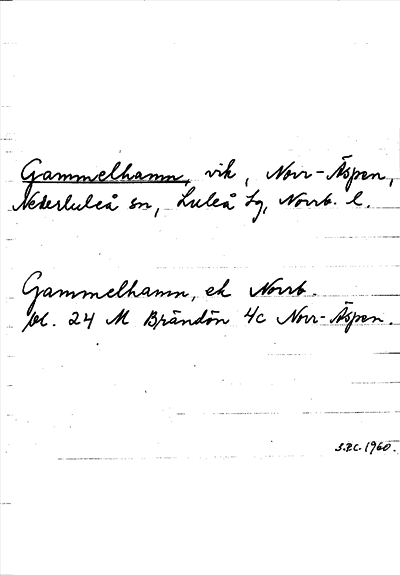 Gammelhamn, vik, Norr-Äspen,
Nederluleå sn, Luleå tg, Norrb. l.
Gammelhamn, ek Norrb.
bl. 24 M Brändön 4c Norr-Äspen.
S.P.C. 1960.